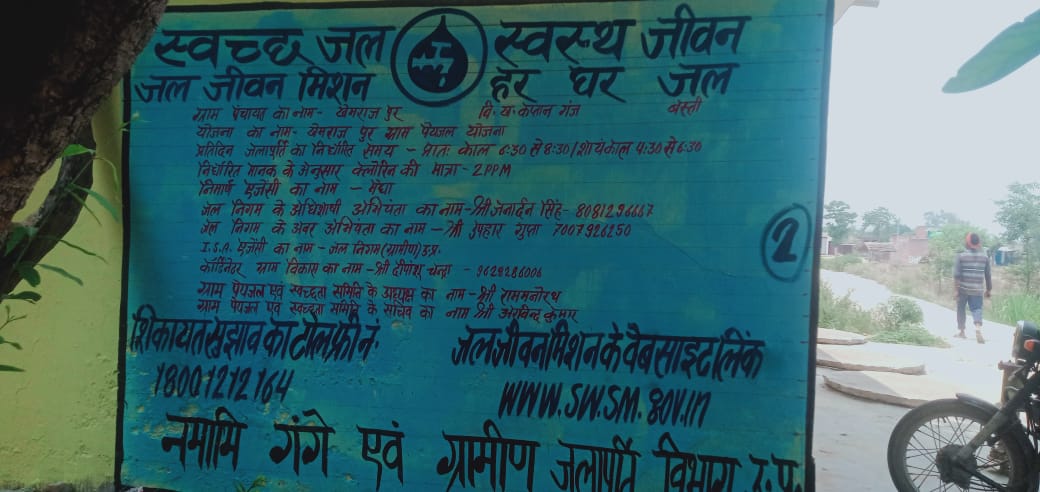 स्वच्छ जल स्वस्थ जीवन
जल जीवन मिशन हर घर जल
ग्राम पंचायत का नाम - खेमराज पुर वि.ख. कप्तान गंज बस्ती
योजना का नाम - खेमराज पुर ग्राम पेयजल योजना
प्रतिदिन जलापूर्ति का निर्धारित समय - प्रातः काल 6:30 से 8:30 / शायंकाल 4:30 से 6:30
निर्धारित मानक के अनुसार क्लोरिन की मात्रा - 2 PPM
निमार्ण एजेंसी का नाम - मेघा
जल निगम के अधिशाषी अभियंता का नाम - श्री जनार्दन सिंह - 8081296667
जल निगम के अवर अभियंता का नाम - श्री उपहार गुप्ता 7007926250
I.S.A. एजेंसी का नाम - जल निगम (ग्रामीण) उ.प्र.
कॉर्डिनेटर ग्राम विकास का नाम - श्री दीपांशु चन्द्रा - 9629286006
ग्राम पेयजल एवं स्वच्छता समिति के अध्यक्ष का नाम - श्री राममनोरथ
ग्राम पेयजल एवं स्वच्छता समिति के सचिव का नाम श्री अरविन्द कुमार
2
शिकायत सुझाव का टोल फ्री नं. जल जीवन मिशन के वेबसाइट लिंक
18001212164 WWW.SWSM.GOV.in
नमामि गंगे एवं ग्रामीण जलापूर्ति विभाग उ.प्र.